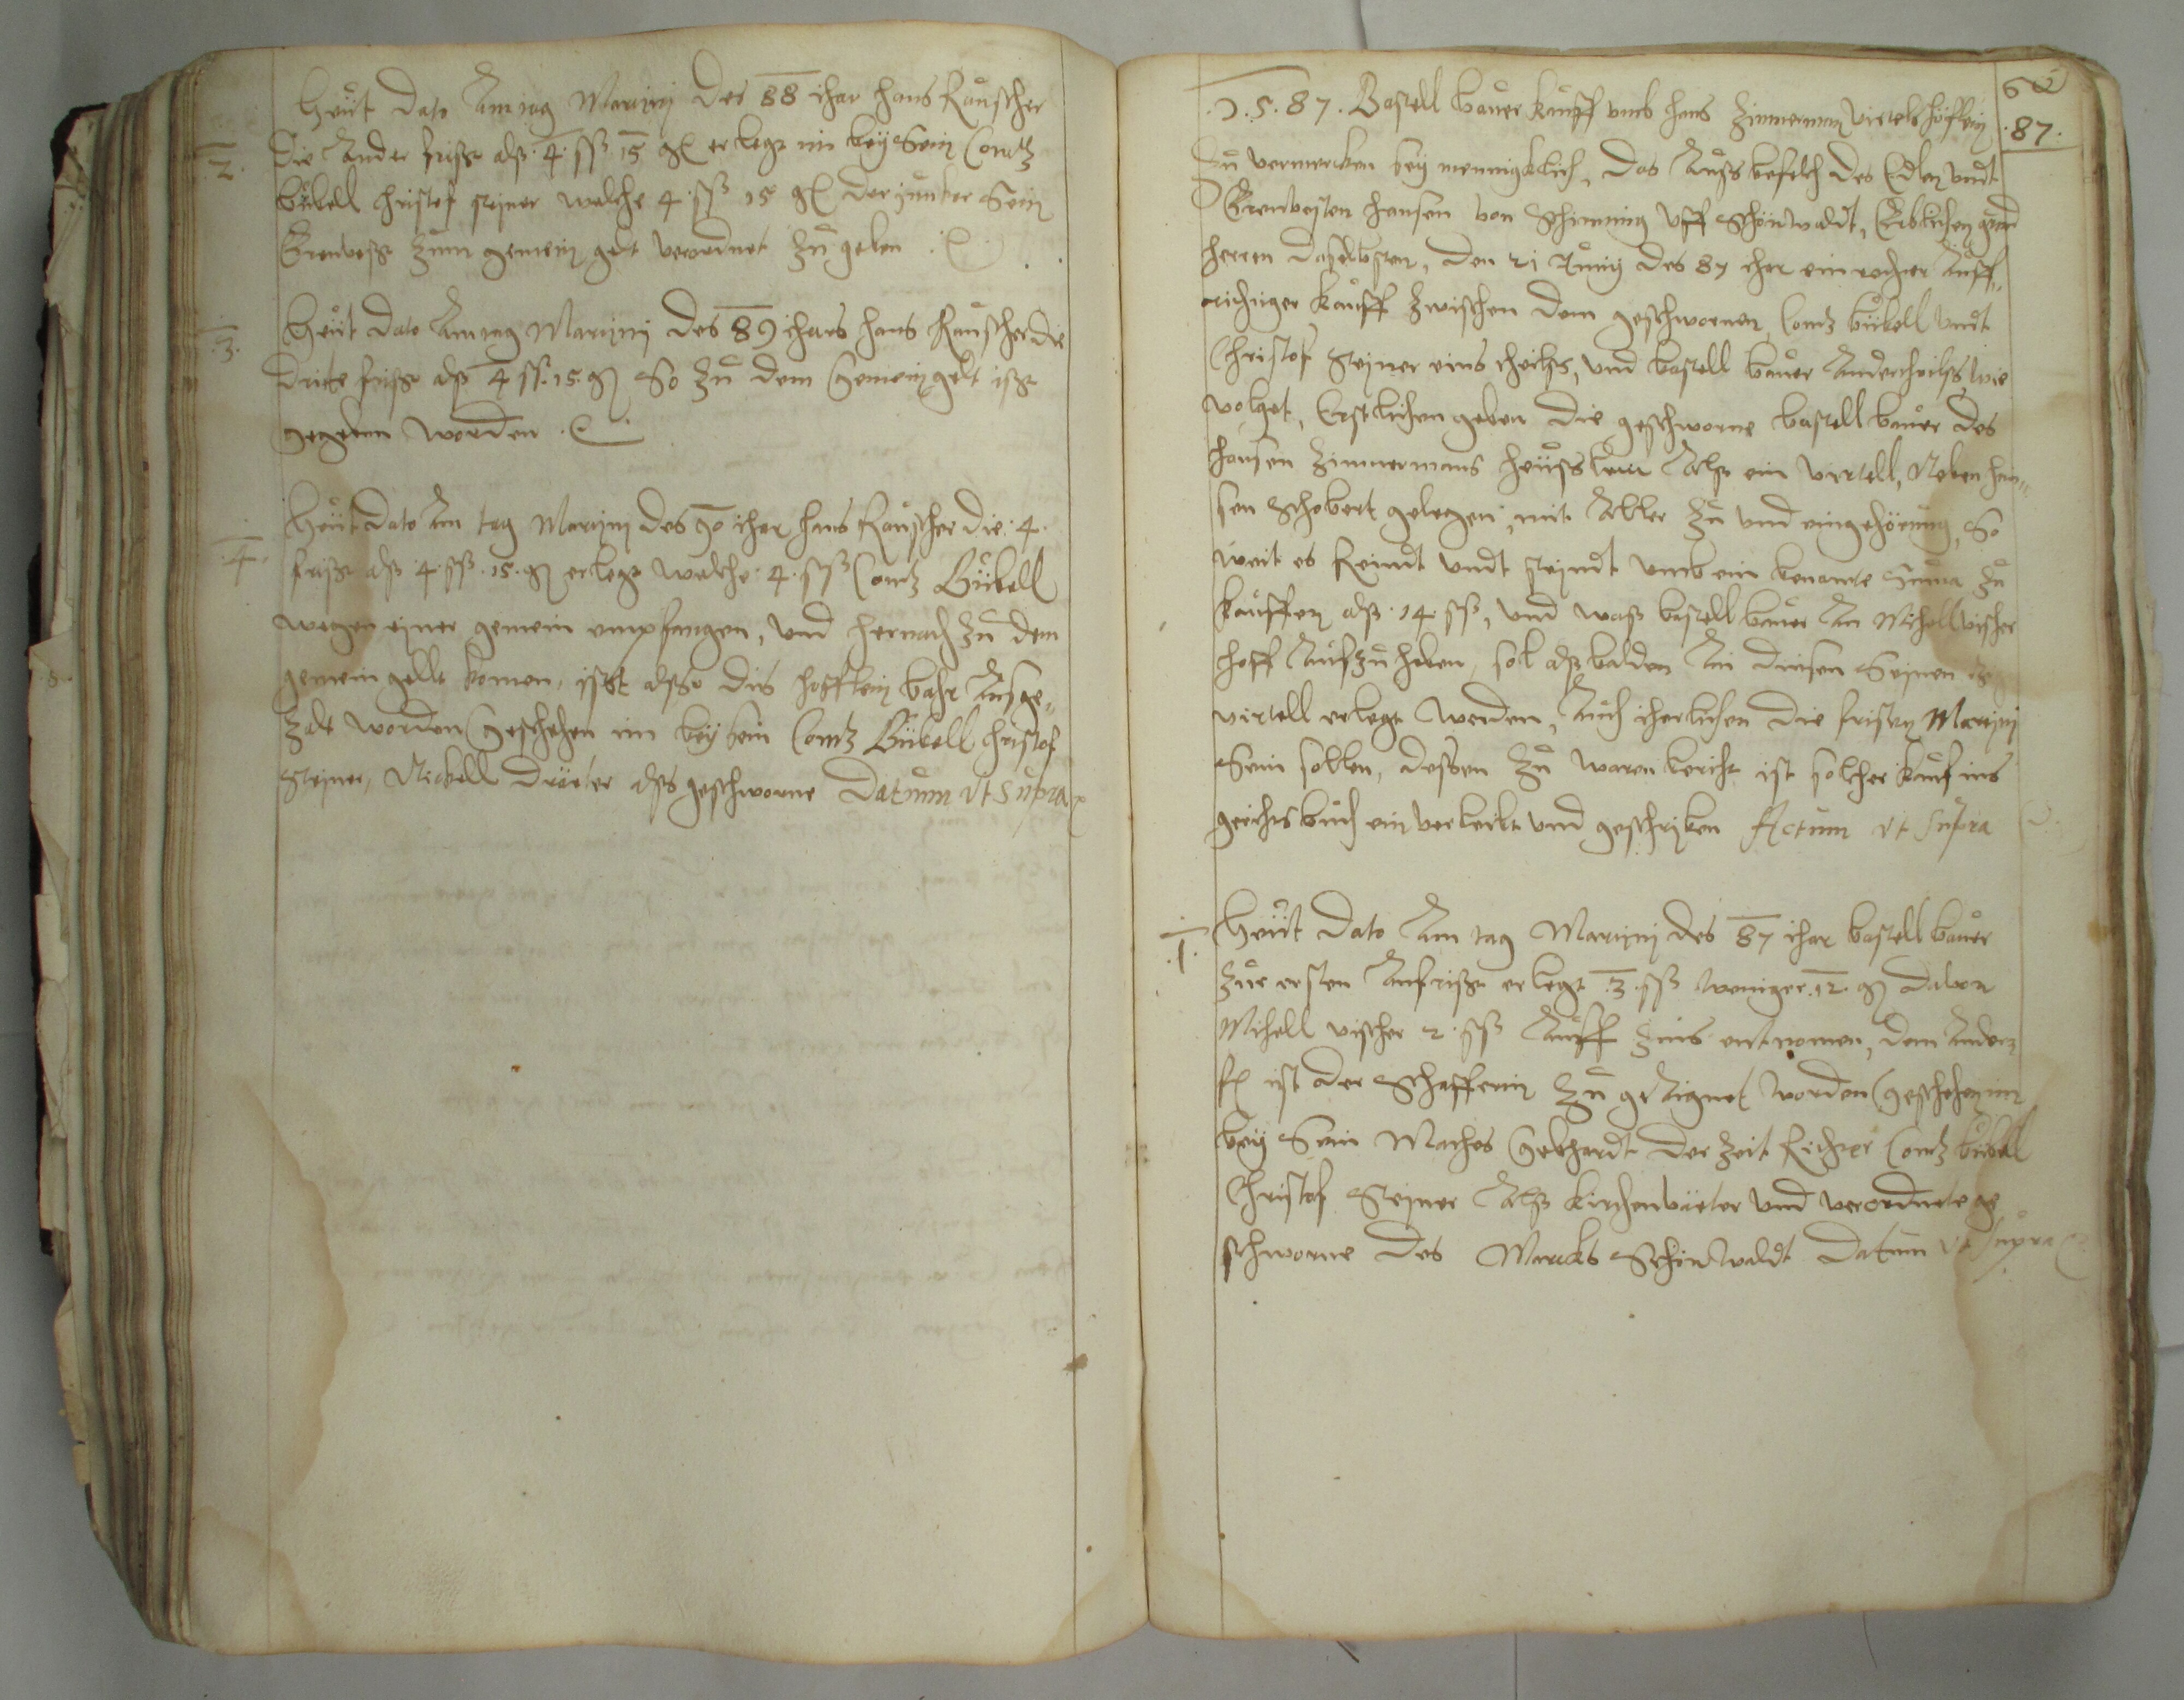 Heut dato Am tag Martinj des 88 ihar hans Rauscher
.2. die Ander frist alß .4. ßß 15 gl erlegt im beÿ Sein Contz
bübell Christof steiner welche 4 ßß 15 gl der Juncker Sein
Erenvest zum gemein gelt verordnet zu geben
.3. Heut dato Am tag Martinj des 89 ihars hans Rauscher die
dritte frist alß 4 ßß. 15. gl So zu dem Gemein gelt ist
gegeben worden
.4. Heut dato Am tag Martinj des 90 ihar hans Rauscher die .4.
frist alß .4. ßß .15. gl erlegt welche .4. ßß Contz Bübell
wegen einer gemein empfangen, und hernach zu dem
gemein gelt komen, ist also dis höfflein bahr Ausge„
zalt worden Geschehen im beÿ sein Contz Bübell Christof
Steiner, Nickell als geschworne Datum Vt Supra
87.
.1.5.87. Bastell bauer kauff umb hans Zimmerman virtels höfflein
Zu vermercken beÿ mennigklich, das Auß befelch des Edlen undt
Erenvesten hansen von Uff Schönwaldt, Erblichen grund
herren daselbsten, den 21 Junij des 87 ihar ein rechter Auff„
richtiger kauff zwischen dem geschwornen, Contz bübell undt
Christof Steiner eins theils, und bastell bauer Anderstheilß, wie
volget, Erstlichen geben die geschworne bastell bauer des
hansen Zimmermans Alß ein virtell, Neben han„
sen Schobert gelegen, mit Aller Zu und eingehörung, So
weit es Reindt undt steindt umb ein benante Suma zu
kauffen alß .14. ßß, und waß bastell bauer An Michell vischer
hoff Aufzuheben, sol alß balden An diesen Seinen
virtell erlegt werden, Auch iherlichen die fristen Martinj
Sein sollen, dessen zu waren bericht ist solcher kauf ins
gerichtsbuch ein verleibt und geschriben Actum Vt Supra
.1. Heut dato Am tag Martinj des 87 ihar bastell bauer
zur ersten Anfrist erlegt .3. ßß weniger .12. gl davon
Michell vischer 2 ßß Auff Zins entnomen, dem Andern
fl ist der Schafferin zu geAignet worden Geschehen im
beÿ Sein Mathes Gebhardt der Zeit Richter Contz bübel
Christof Steiner Alß kirchenväter und verordnete ge
schworne des Marckts Schönwaldt Datum Vt Supra